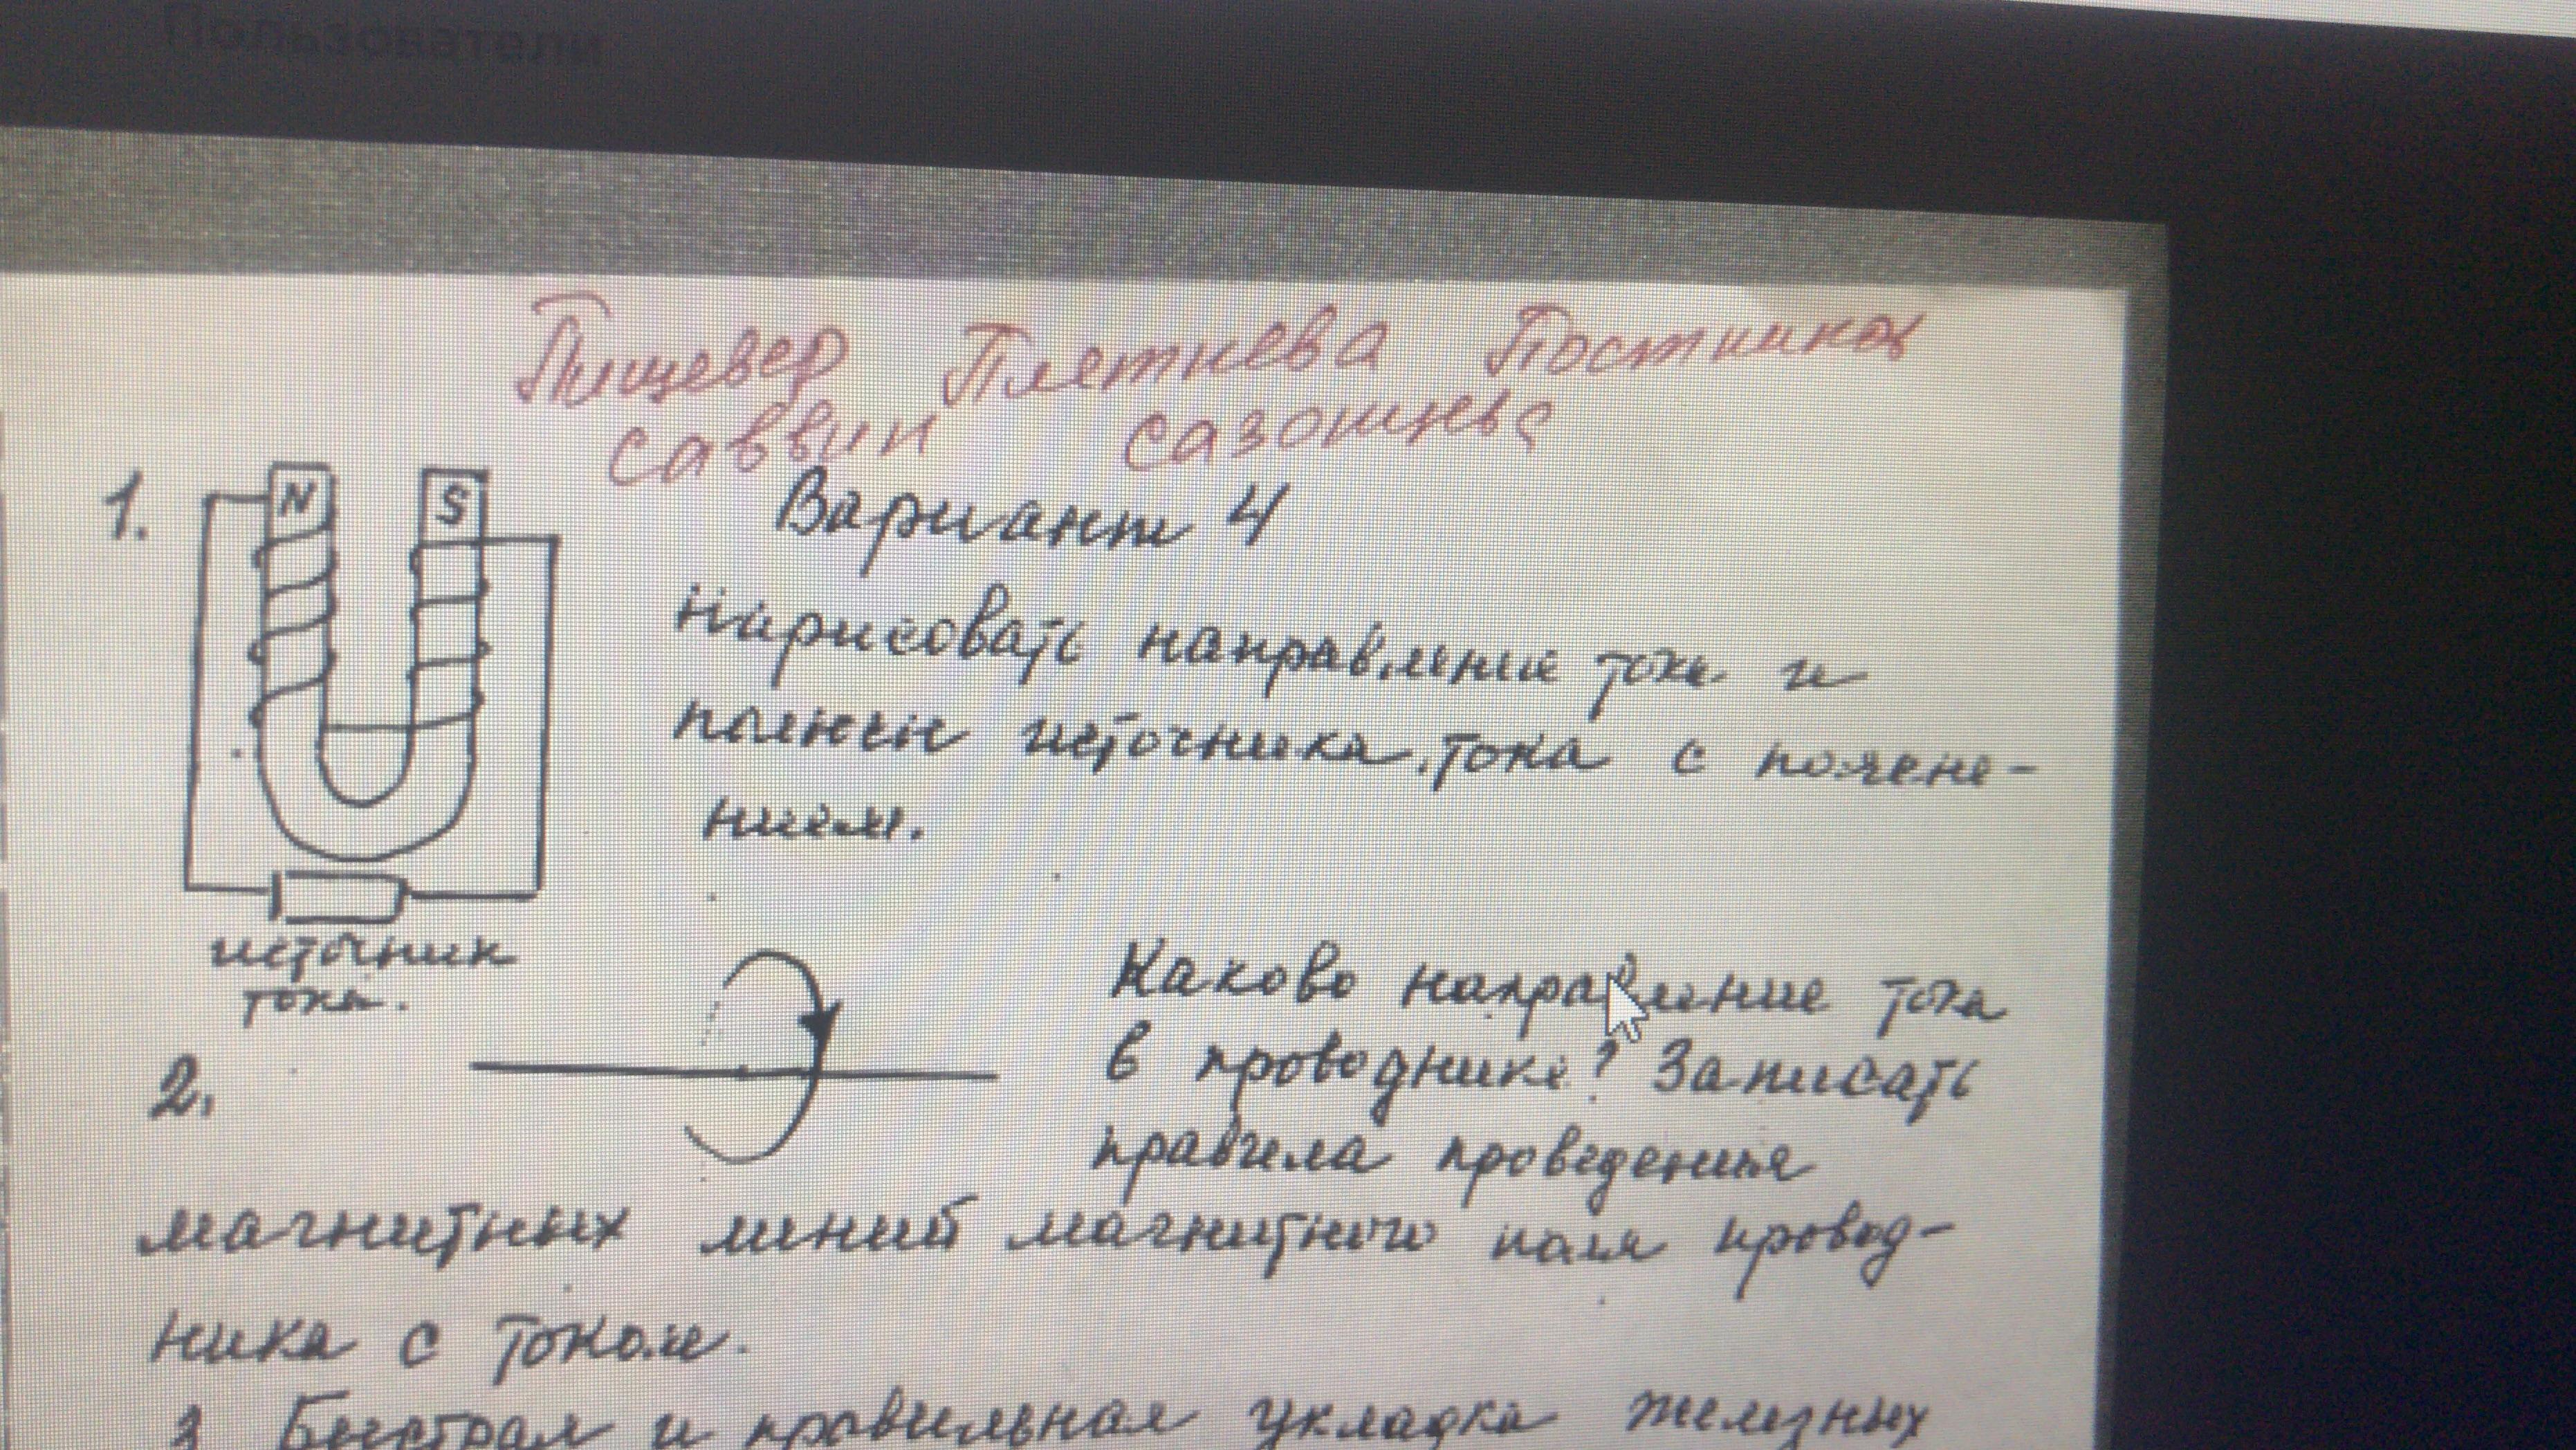 Пользователи
Пищевер Плетнева Постников
Саввин Сазонцева
Вариант 4
1.
N S
Нарисовать направление тока и
полюсы источника тока с поясне-
нием.
источник
тока.
2.
Каково направление тока
в проводнике? Записать
правила проведения
магнитных линий магнитного поля провод-
ника с током.
3 Быстрая и правильная укладка железных